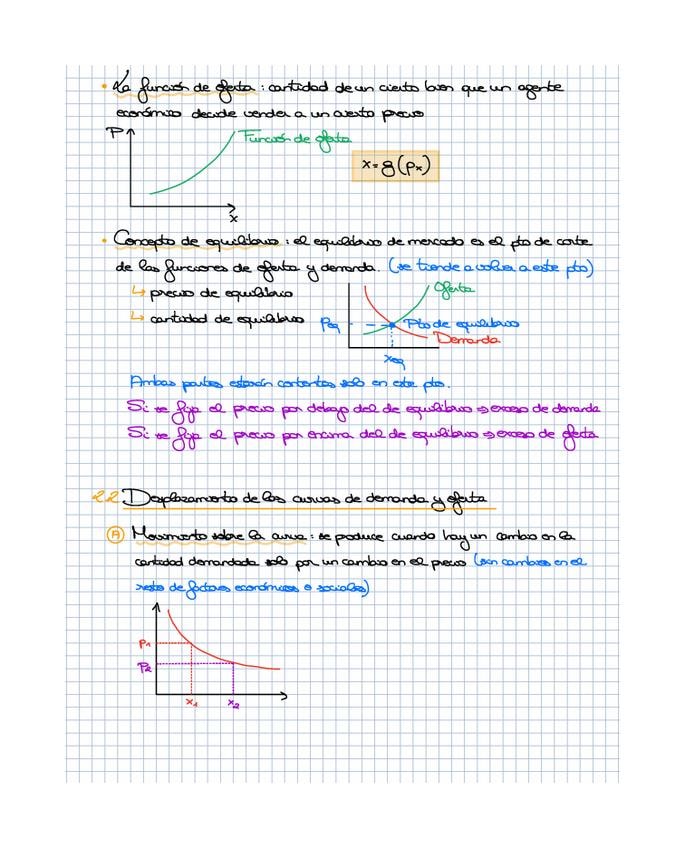 • La función de oferta : cantidad de un cierto bien que un agente
económico decide vender a un cierto precio
P
Función de oferta
x = g(px)
x
• Concepto de equilibrio : el equilibrio de mercado es el pto de corte
de las funciones de oferta y demanda. (se tiende a volver a este pto)
↳ precio de equilibrio
Oferta
↳ cantidad de equilibrio
Peq
Pto de equilibrio
Demanda
xeq
Ambas partes estarán contentas solo en este pto.
Si se fija el precio por debajo del de equilibrio ⇒ exceso de demanda
Si se fija el precio por encima del de equilibrio ⇒ exceso de oferta
2.2 Desplazamiento de las curvas de demanda y oferta
Ⓐ Movimiento sobre la curva : se produce cuando hay un cambio en la
cantidad demandada solo por un cambio en el precio (sin cambios en el
resto de factores económicos o sociales)
P1
P2
x1 x2